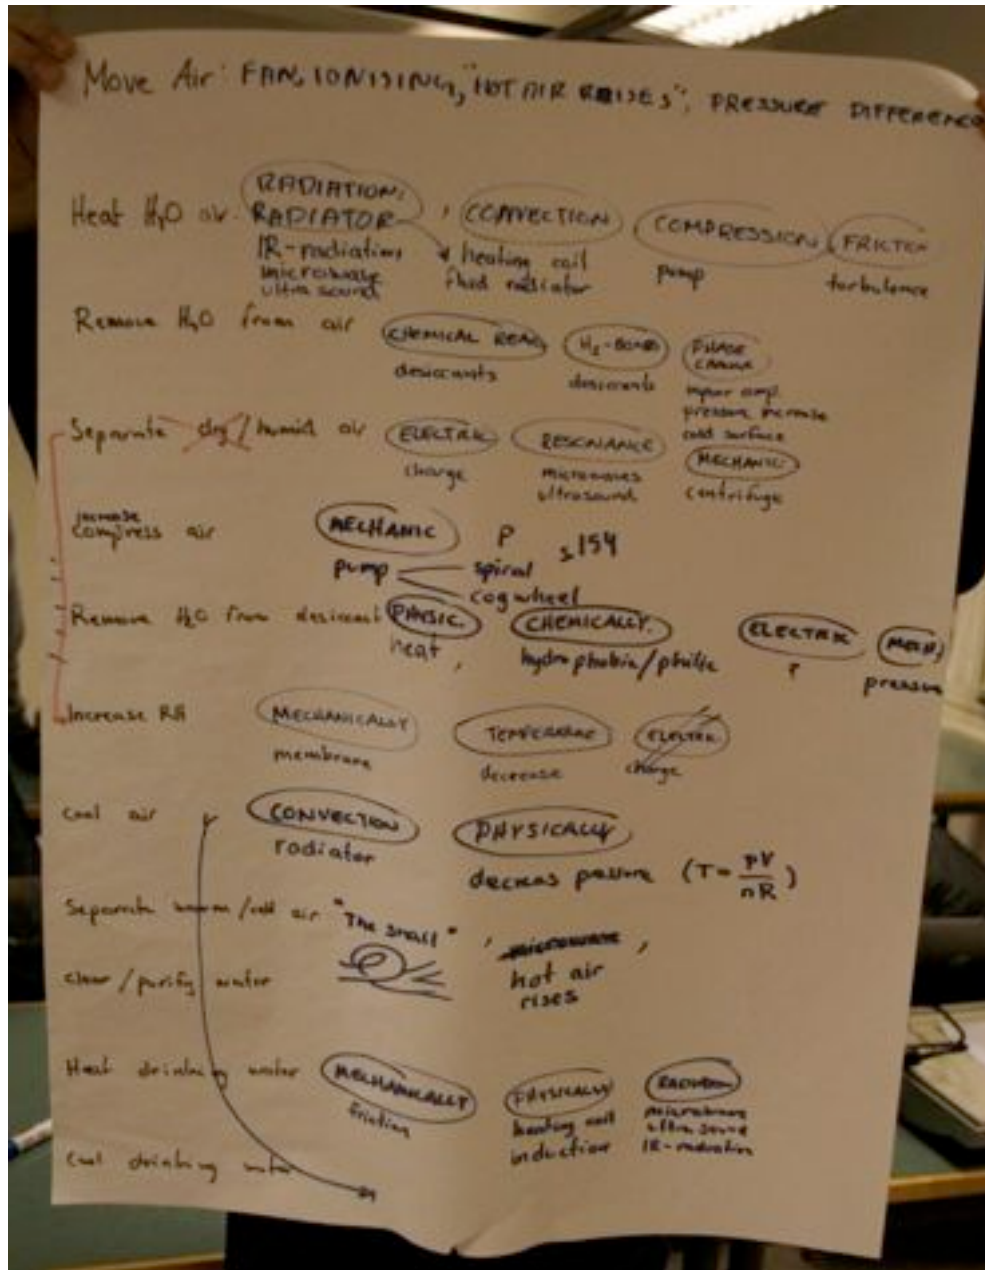 Move Air: FAN, IONISING, "HOT AIR RAISES", PRESSURE DIFFERENCE
Heat H2O air. RADIATION: RADIATOR , CONVECTION COMPRESSION FRICTION
IR-radiation heating coil pump turbulence
microwave fluid radiator
ultra sound
Remove H2O from air CHEMICAL REAC. H2-BOND PHASE CHANGE
desiccants desiccants
pressure increase
cold surface
Separate dry/humid air ELECTRIC RESONANCE MECHANIC
charge microwaves centrifuge
ultrasound
increase
Compress air MECHANIC P s154
pump spiral
cogwheel
Remove H2O from desiccant PHYSIC. CHEMICALLY. ELECTRIC MECH.
heat, hydrophobic/philic ? pressure
Increase RH MECHANICALLY TEMPERATURE ELECTRIC
membrane decrease charge
Cool air CONVECTION PHYSICALLY
radiator decreas pressure (T = pV/nR)
Separate warm/cold air "The snail" , microwave ,
hot air
rises
clear/purify water
Heat drinking water MECHANICALLY PHYSICALLY RADIATION
friction heating coil microwave
induction ultra sound
IR-radiation
Cool drinking water